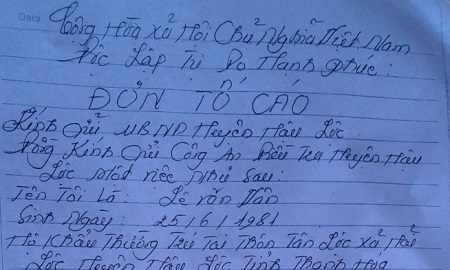 Cộng Hòa xả Hội Chủ Nghĩa Việt Nam
Độc Lập Tự Do Hạnh Phúc:
ĐƠN TỐ CÁO
Kính Gửi UBND Huyện Hậu Lộc
Kính Gửi Công An Điều Tra Huyện Hậu
Lộc một việc Như Sau:
Tên Tôi Là: Lê văn Tân
Sinh Ngày: 25/6/1981
Hộ Khẩu Thường Trú Tại Thôn Tân Lộc xả Hải
Lộc Huyện Hậu Lộc Tỉnh Thanh Hóa